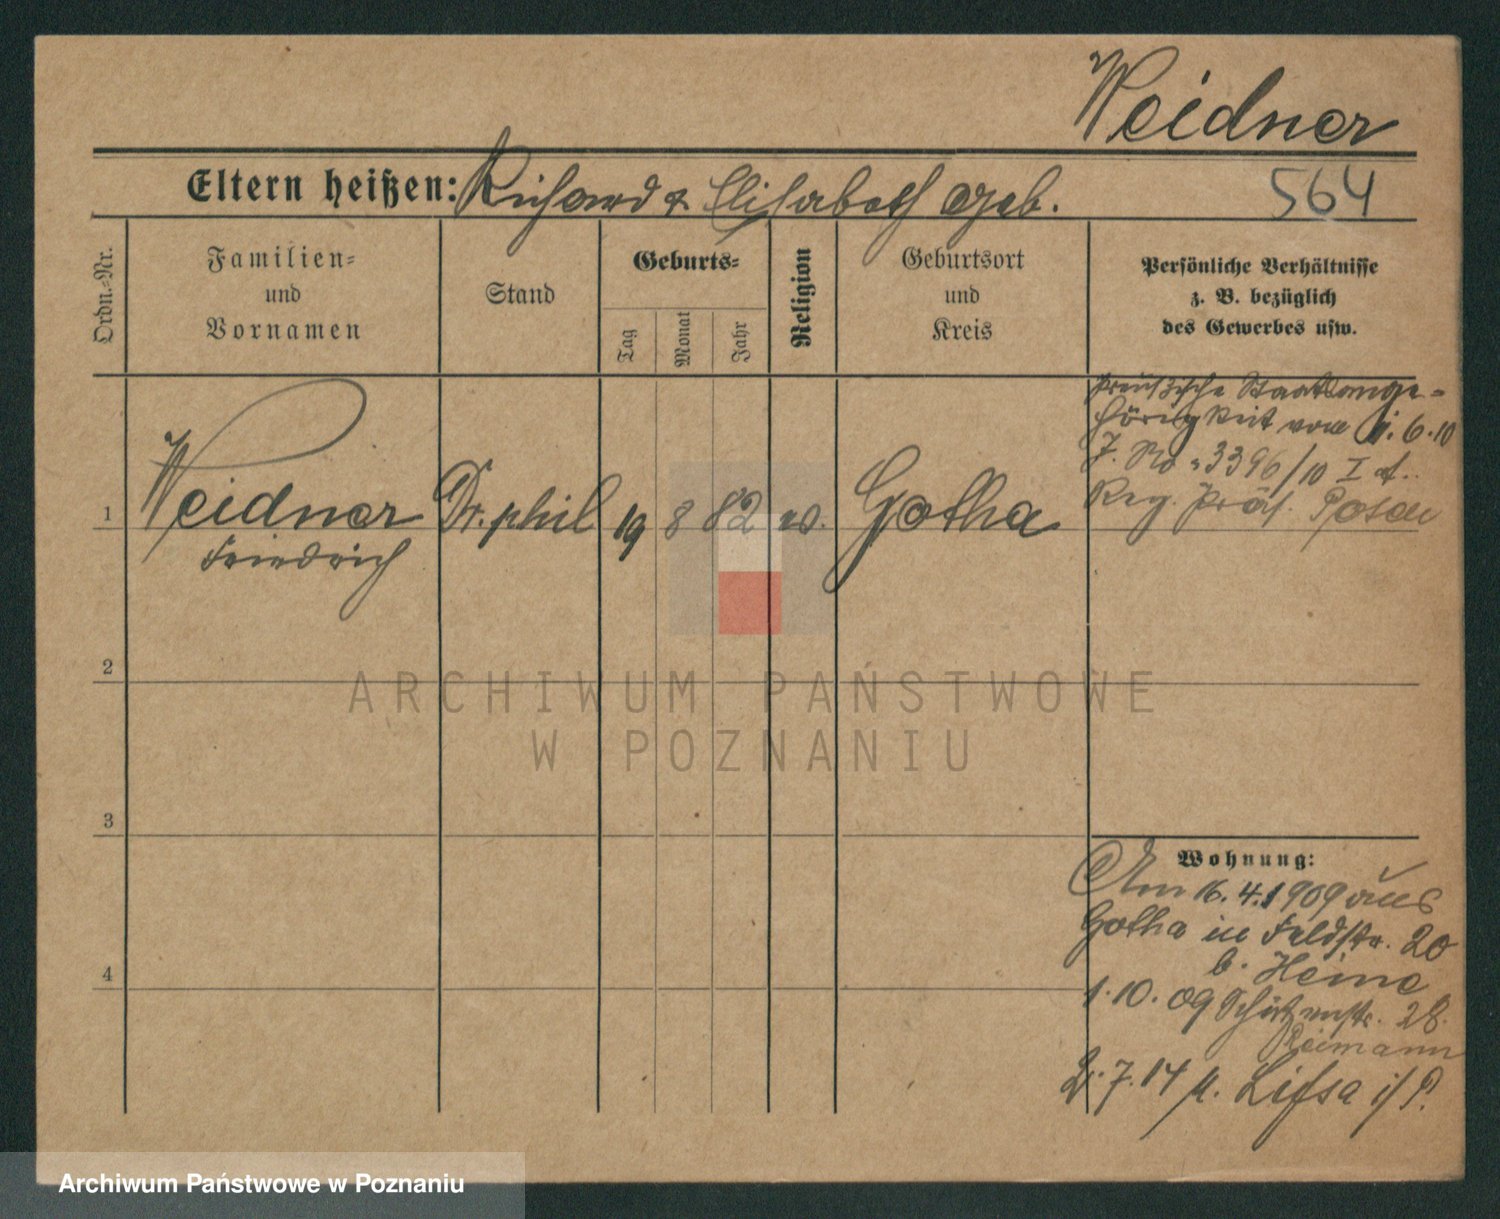 Weidner
Eltern heißen: Richard & Elisabeth geb.
564
Ordn.-Nr.
Familien-
und
Vornamen
Stand
Geburts-
Tag
Monat
Jahr
Religion
Geburtsort
und
Kreis
Persönliche Verhältnisse
z. B. bezüglich
des Gewerbes usw.
1
Weidner
Friedrich
Dr. phil
19
8
82
ev.
Gotha
Preußische Staatsange-
hörigkeit vom 1.6.10
J. No 3396/10 I
Reg. Präs. Posen
2
3
4
Wohnung:
Am 16.4.1909 aus
Gotha in Feldstr. 20
b. Heine
1.10.09 Schützenstr. 28.
Reimann
2.7.14 n. Lissa i/P.
ARCHIWUM PAŃSTWOWE
W POZNANIU
Archiwum Państwowe w Poznaniu